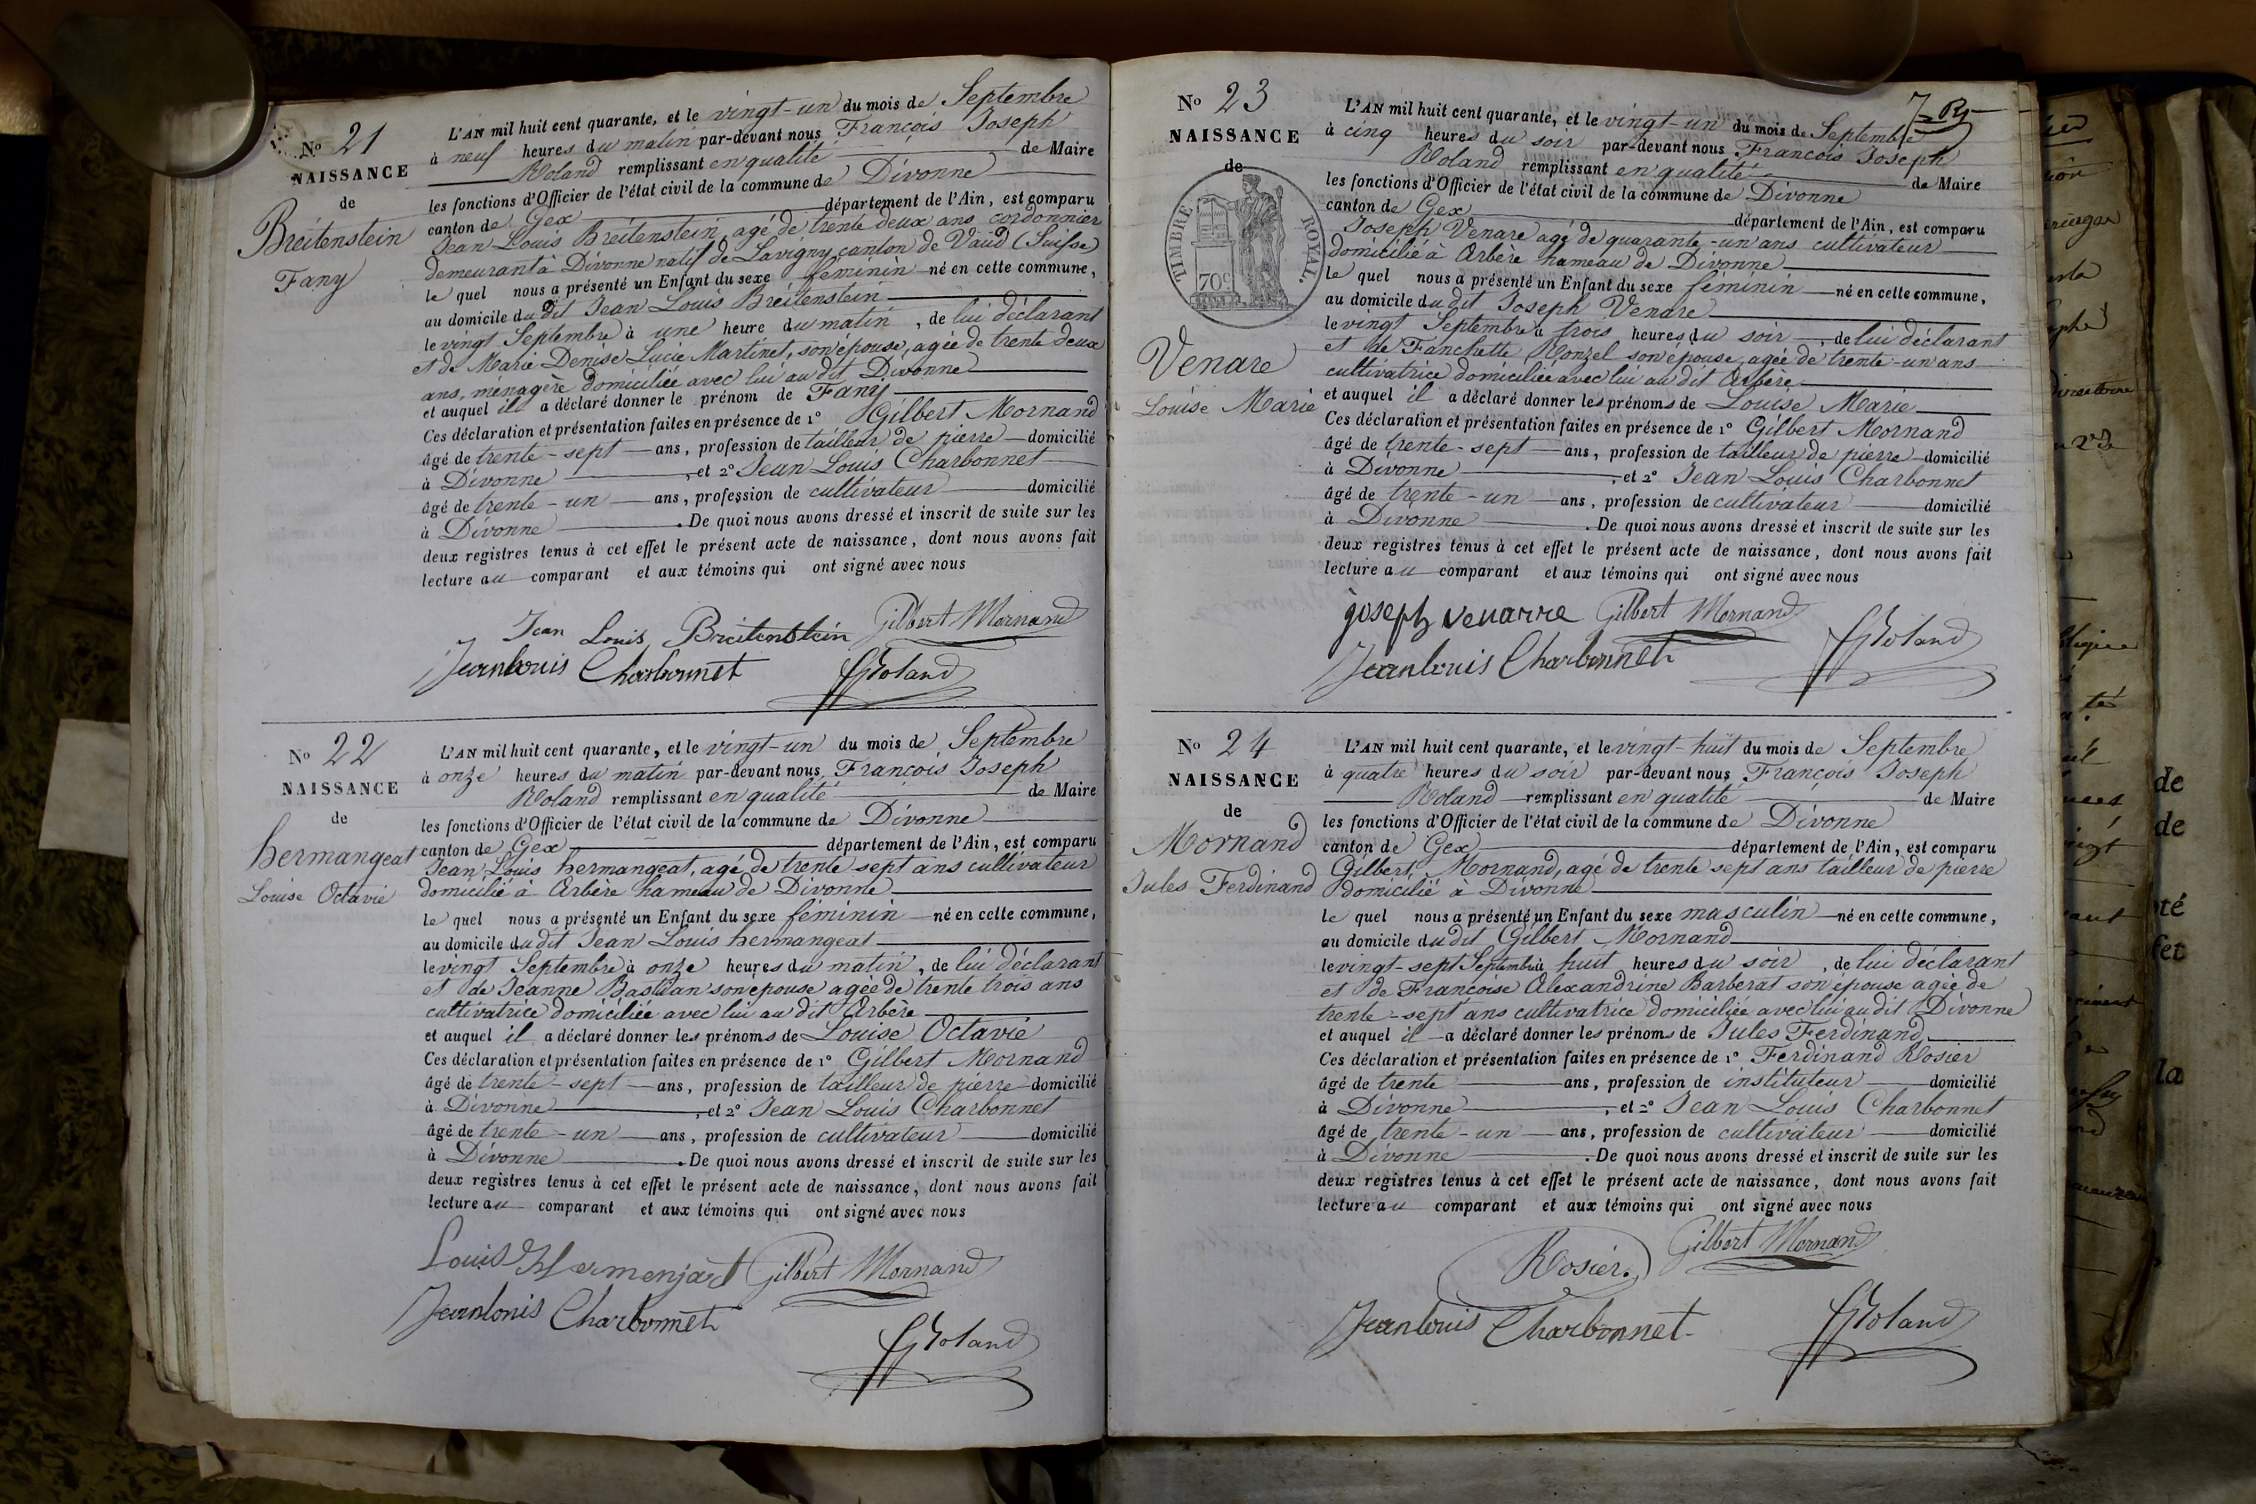 No 21
NAISSANCE
de
Breitenstein
Fany
L'AN mil huit cent quarante, et le vingt-un du mois de Septembre
à neuf heures du matin par-devant nous François Joseph
Roland remplissant en qualité de Maire
les fonctions d'Officier de l'état civil de la commune de Divonne
canton de Gex département de l'Ain, est comparu
Jean Louis Breitenstein, agé de trente deux ans cordonnier
demeurant à Divonne natif de Lavigny canton de Vaud (Suisse)
le quel nous a présenté un Enfant du sexe féminin né en cette commune,
au domicile du dit Jean Louis Breitenstein
le vingt Septembre à une heure du matin, de lui déclarant
et de Marie Denise Lucie Martinet, son épouse, agée de trente deux
ans, ménagère domiciliée avec lui au dit Divonne
et auquel il a déclaré donner le prénom de Fany
Ces déclaration et présentation faites en présence de 1° Gilbert Mornand
âgé de trente-sept ans, profession de tailleur de pierre domicilié
à Divonne, et 2° Jean Louis Charbonnet
âgé de trente-un ans, profession de cultivateur domicilié
à Divonne. De quoi nous avons dressé et inscrit de suite sur les
deux registres tenus à cet effet le présent acte de naissance, dont nous avons fait
lecture au comparant et aux témoins qui ont signé avec nous
Jean Louis Breitenstein Gilbert Mornand
Jeanlouis Charbonnet FJRoland
No 22
NAISSANCE
de
hermangeat
Louise Octavie
L'AN mil huit cent quarante, et le vingt-un du mois de Septembre
à onze heures du matin par-devant nous François Joseph
Roland remplissant en qualité de Maire
les fonctions d'Officier de l'état civil de la commune de Divonne
canton de Gex département de l'Ain, est comparu
Jean Louis hermangeat, agé de trente sept ans cultivateur
domicilié à Arbère hameau de Divonne
le quel nous a présenté un Enfant du sexe féminin né en cette commune,
au domicile du dit Jean Louis hermangeat
le vingt Septembre à onze heures du matin, de lui déclarant
et de Jeanne Bastian son épouse agée de trente trois ans
cultivatrice domiciliée avec lui au dit Arbère
et auquel il a déclaré donner les prénoms de Louise Octavie
Ces déclaration et présentation faites en présence de 1° Gilbert Mornand
âgé de trente-sept ans, profession de tailleur de pierre domicilié
à Divonne, et 2° Jean Louis Charbonnet
âgé de trente-un ans, profession de cultivateur domicilié
à Divonne. De quoi nous avons dressé et inscrit de suite sur les
deux registres tenus à cet effet le présent acte de naissance, dont nous avons fait
lecture au comparant et aux témoins qui ont signé avec nous
Louis Hermenjat Gilbert Mornand
Jeanlouis Charbonnet
FJRoland
No 23
NAISSANCE
de
TIMBRE ROYAL.
70c
Venare
Louise Marie
L'AN mil huit cent quarante, et le vingt-un du mois de Septembre
à cinq heures du soir par-devant nous François Joseph
Roland remplissant en qualité de Maire
les fonctions d'Officier de l'état civil de la commune de Divonne
canton de Gex département de l'Ain, est comparu
Joseph Venare agé de quarante-un ans cultivateur
domicilié à Arbère hameau de Divonne
le quel nous a présenté un Enfant du sexe féminin né en cette commune,
au domicile du dit Joseph Venare
le vingt Septembre à trois heures du soir, de lui déclarant
et de Fanchette Ronzel son épouse agée de trente-un ans
cultivatrice domiciliée avec lui au dit Arbère
et auquel il a déclaré donner les prénoms de Louise Marie
Ces déclaration et présentation faites en présence de 1° Gilbert Mornand
âgé de trente-sept ans, profession de tailleur de pierre domicilié
à Divonne, et 2° Jean Louis Charbonnet
âgé de trente-un ans, profession de cultivateur domicilié
à Divonne. De quoi nous avons dressé et inscrit de suite sur les
deux registres tenus à cet effet le présent acte de naissance, dont nous avons fait
lecture au comparant et aux témoins qui ont signé avec nous
joseph venarre Gilbert Mornand
Jeanlouis Charbonnet FJRoland
No 24
NAISSANCE
de
Mornand
Jules Ferdinand
L'AN mil huit cent quarante, et le vingt-huit du mois de Septembre
à quatre heures du soir par-devant nous François Joseph
Roland remplissant en qualité de Maire
les fonctions d'Officier de l'état civil de la commune de Divonne
canton de Gex département de l'Ain, est comparu
Gilbert Mornand, agé de trente sept ans tailleur de pierre
domicilié à Divonne
le quel nous a présenté un Enfant du sexe masculin né en cette commune,
au domicile du dit Gilbert Mornand
le vingt-sept Septembre à huit heures du soir, de lui déclarant
et de Françoise Alexandrine Barberat son épouse agée de
trente-sept ans cultivatrice domiciliée avec lui au dit Divonne
et auquel il a déclaré donner les prénoms de Jules Ferdinand
Ces déclaration et présentation faites en présence de 1° Ferdinand Rosier
âgé de trente ans, profession de instituteur domicilié
à Divonne, et 2° Jean Louis Charbonnet
âgé de trente-un ans, profession de cultivateur domicilié
à Divonne. De quoi nous avons dressé et inscrit de suite sur les
deux registres tenus à cet effet le présent acte de naissance, dont nous avons fait
lecture au comparant et aux témoins qui ont signé avec nous
Rosier. Gilbert Mornand
Jeanlouis Charbonnet FJRoland
de
de
té
fet
la